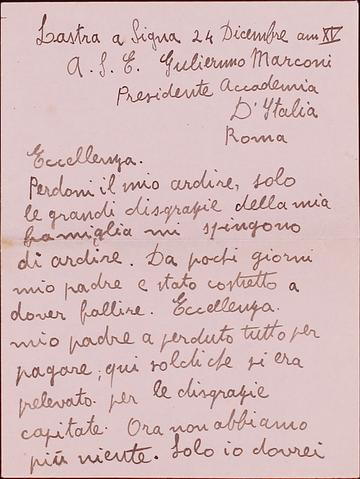 Lastra a Signa 24 Dicembre ann XV
A. S. E. Guliermo Marconi
Presidente Accademia
D'Italia
Roma
Eccellenza.
Perdoni il mio ardire, solo
le grandi disgrazie della mia
famiglia mi spingono
di ardire. Da pochi giorni
mio padre e stato costretto a
dover fallire. Eccellenza.
mio padre a perduto tutto per
pagare, qui soldi che si era
prelevato per le disgrazie
capitate. Ora non abbiamo
più niente. Solo io dovrei